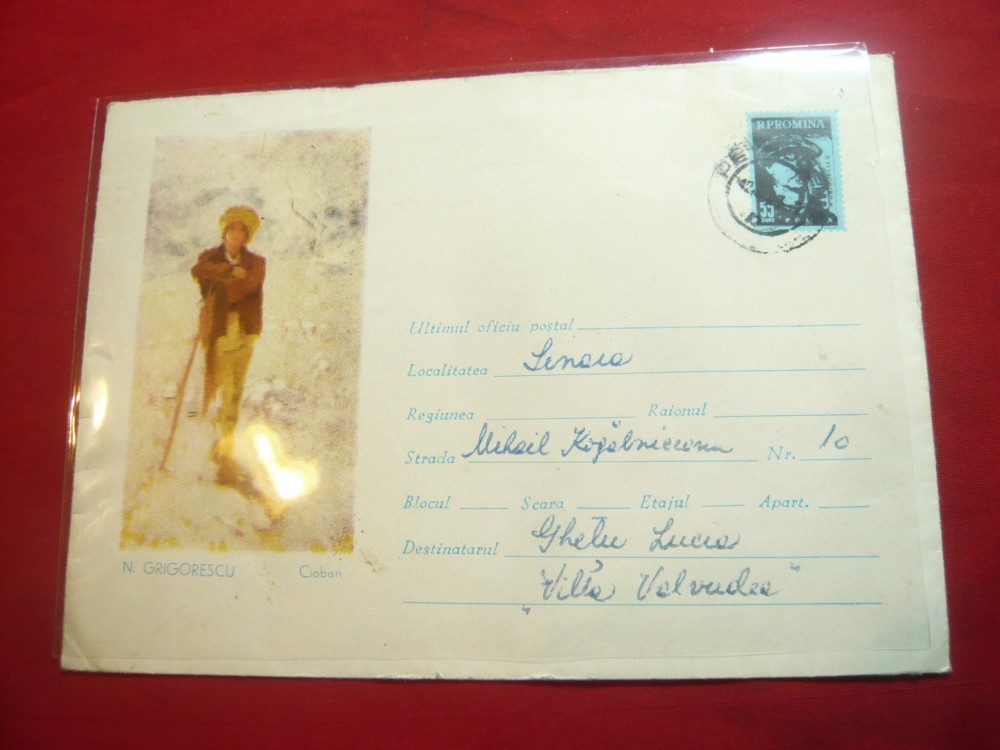 R.P.ROMINA
55
POSTA
Ultimul oficiu poștal
Localitatea Sinaia
Regiunea Raionul
Strada Mihail Kogălniceanu Nr. 10
Blocul Scara Etajul Apart.
Destinatarul Ghețu Lucia
"Villa Valverdea"
N. GRIGORESCU Cioban